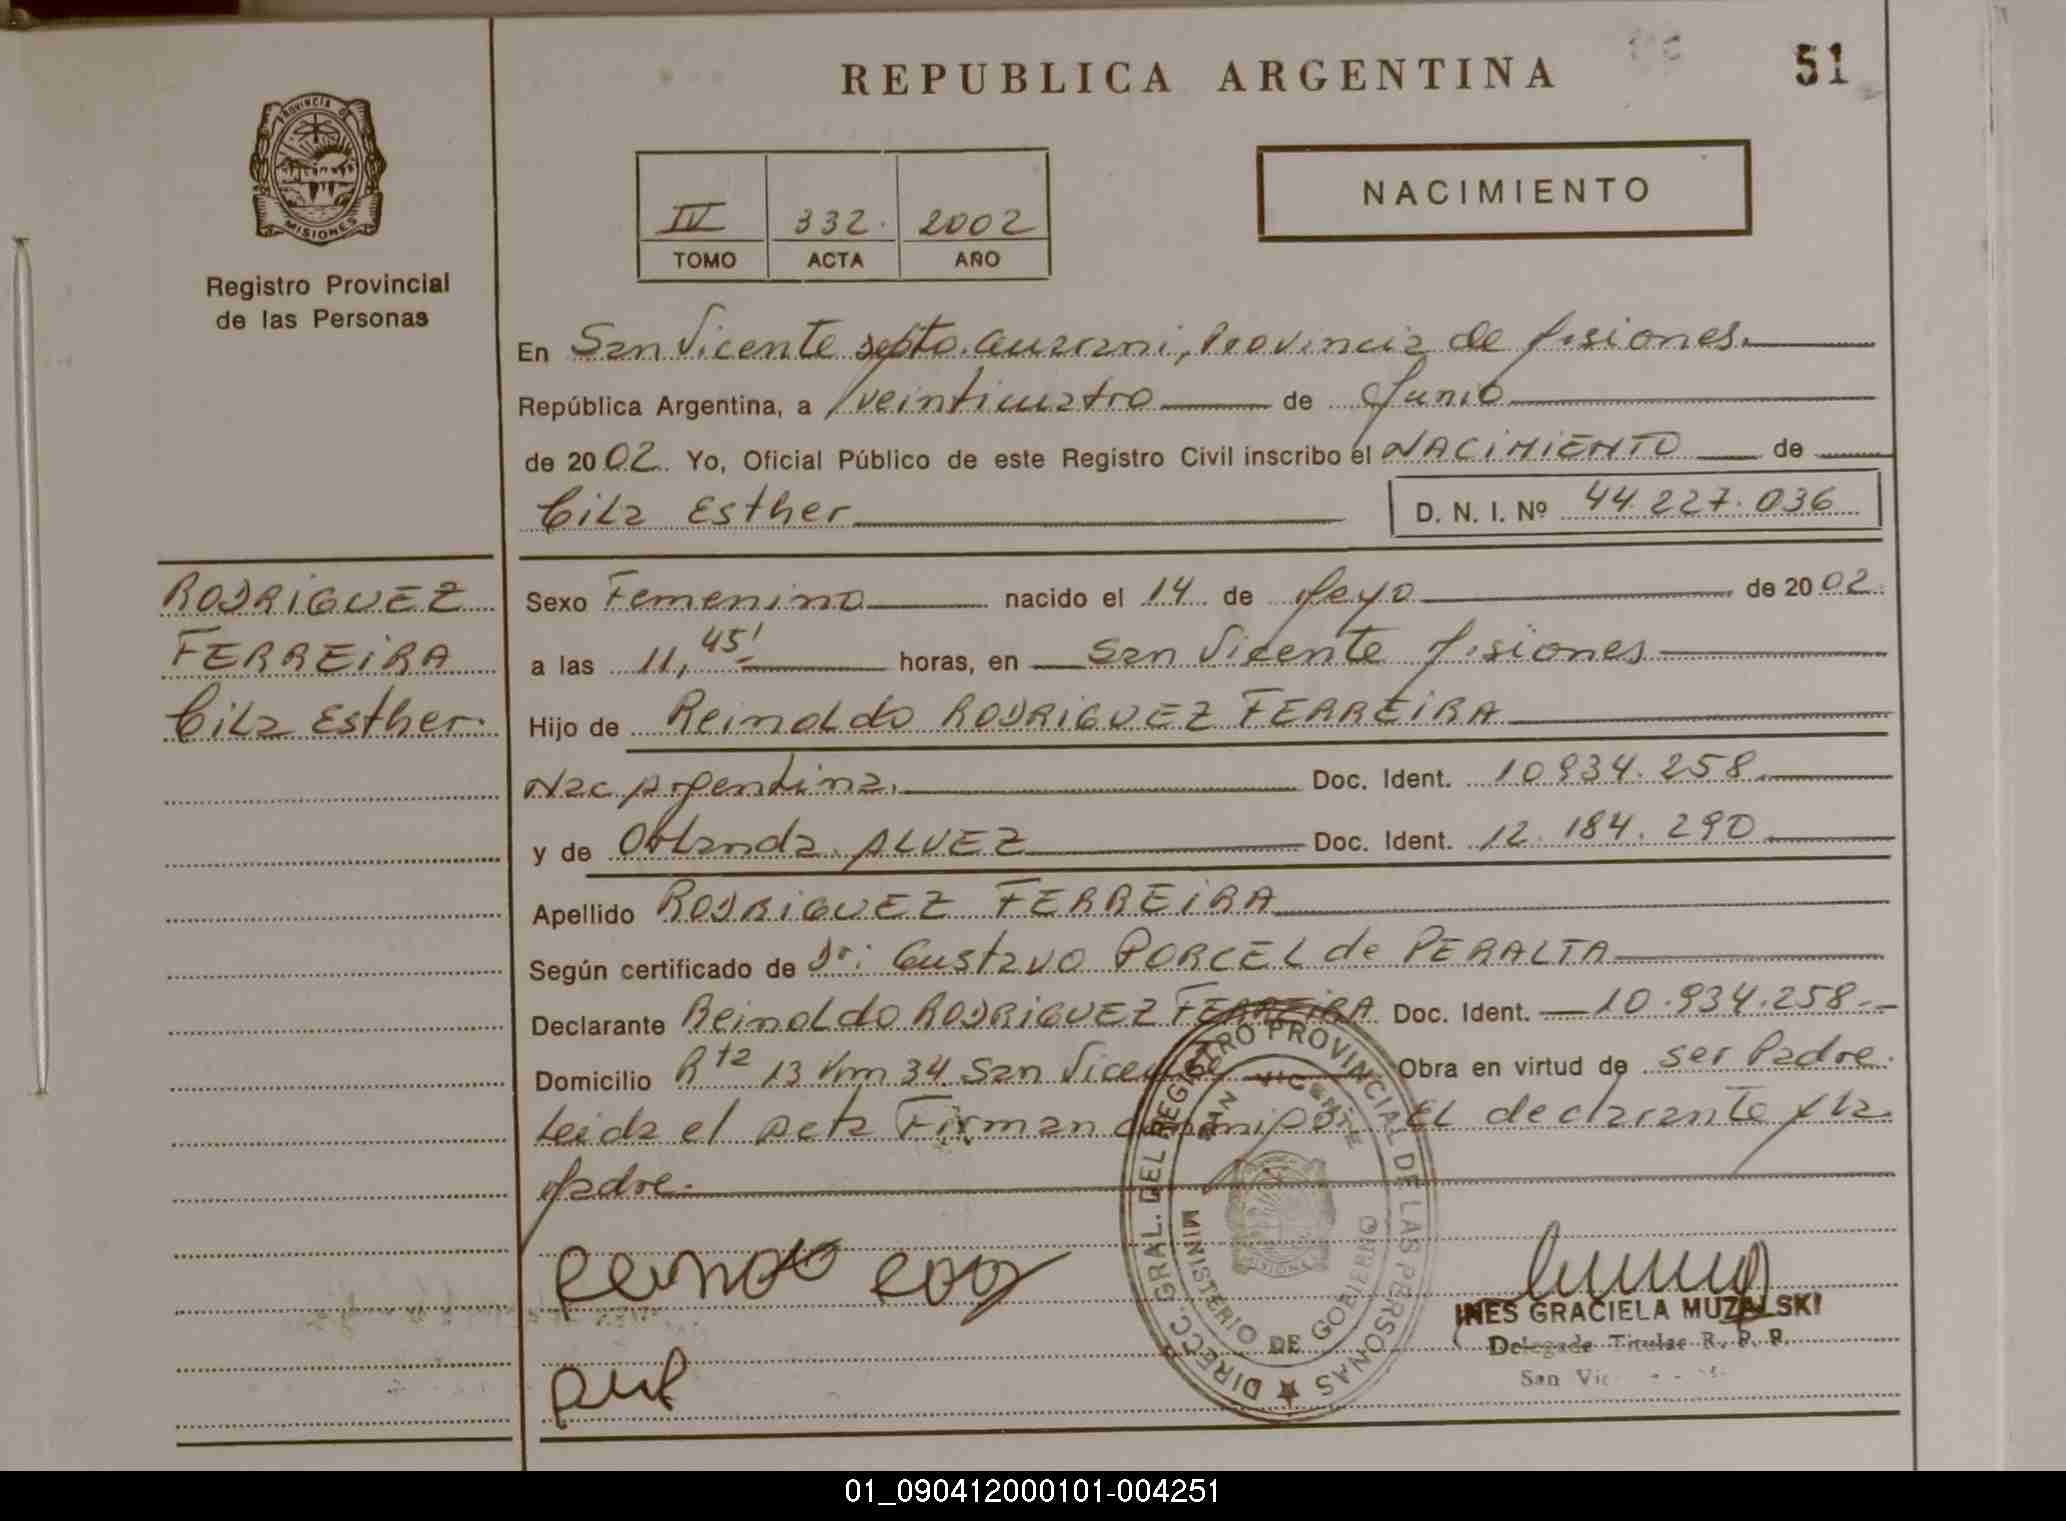 REPUBLICA ARGENTINA
51
PROVINCIA D
MISIONES
Registro Provincial
de las Personas
IV 332. 2002
TOMO ACTA AÑO
NACIMIENTO
En San Vicente Dpto. Guarani, Provincia de Misiones.
República Argentina, a veinticuatro de Junio
de 2002. Yo, Oficial Público de este Registro Civil inscribo el NACIMIENTO de
Cila Esther
D. N. I. Nº 44.227.036
RODRIGUEZ
FERREIRA
Cila Esther.
Sexo Femenino nacido el 14 de Mayo de 2002.
a las 11,45' horas, en San Vicente Misiones
Hijo de Reinaldo RODRIGUEZ FERREIRA
Nac Argentina. Doc. Ident. 10934.258.
y de Orlanda ALVEZ Doc. Ident. 12.184.290
Apellido RODRIGUEZ FERREIRA
Según certificado de Dr: Gustavo PORCEL de PERALTA
Declarante Reinaldo RODRIGUEZ FERREIRA Doc. Ident. 10.934.258.-
Domicilio Rta 13 Km 34 San Vicente Obra en virtud de ser Padre.
Leida el acta Firman conmigo: El declarante y la
Madre.
DIRECC. GRAL. DEL REGISTRO PROVINCIAL DE LAS PERSONAS
SAN VICENTE
MINISTERIO DE GOBIERNO
MISIONES
INES GRACIELA MUZALSKI
Delegada Titular R. P. P.
San Vic
01_090412000101-004251